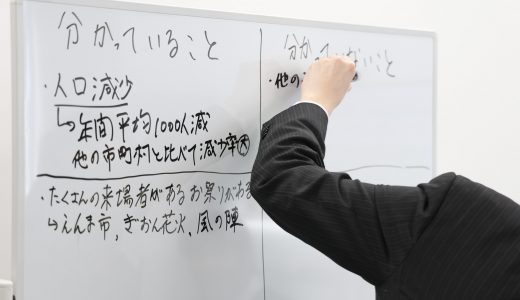 分かっていること
・人口減少
↳年間平均1000人減
他の市町村と比べて減少率大
・たくさんの来場者があるお祭りがある
↳えんま市、ぎおん花火、風の陣
分かっていないこと
・他の